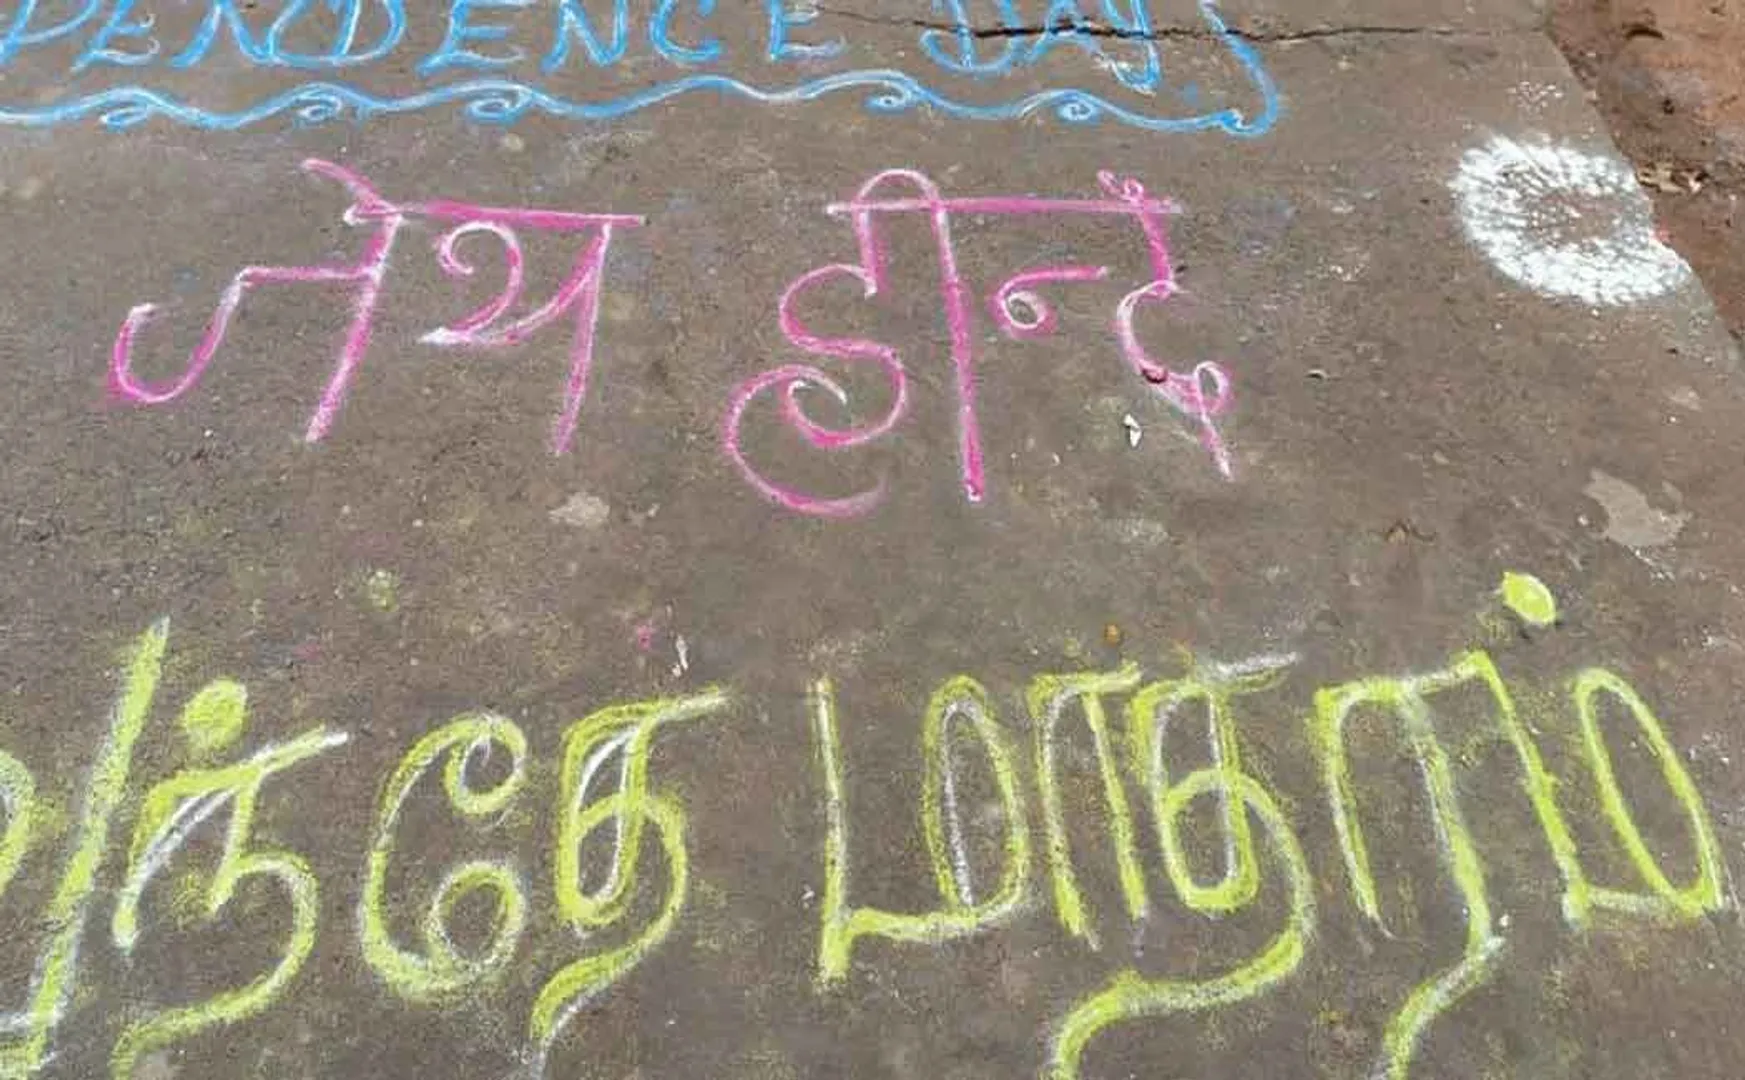 PENDENCE DAY
जेथ हीन्द्
வந்தே மாதரம்